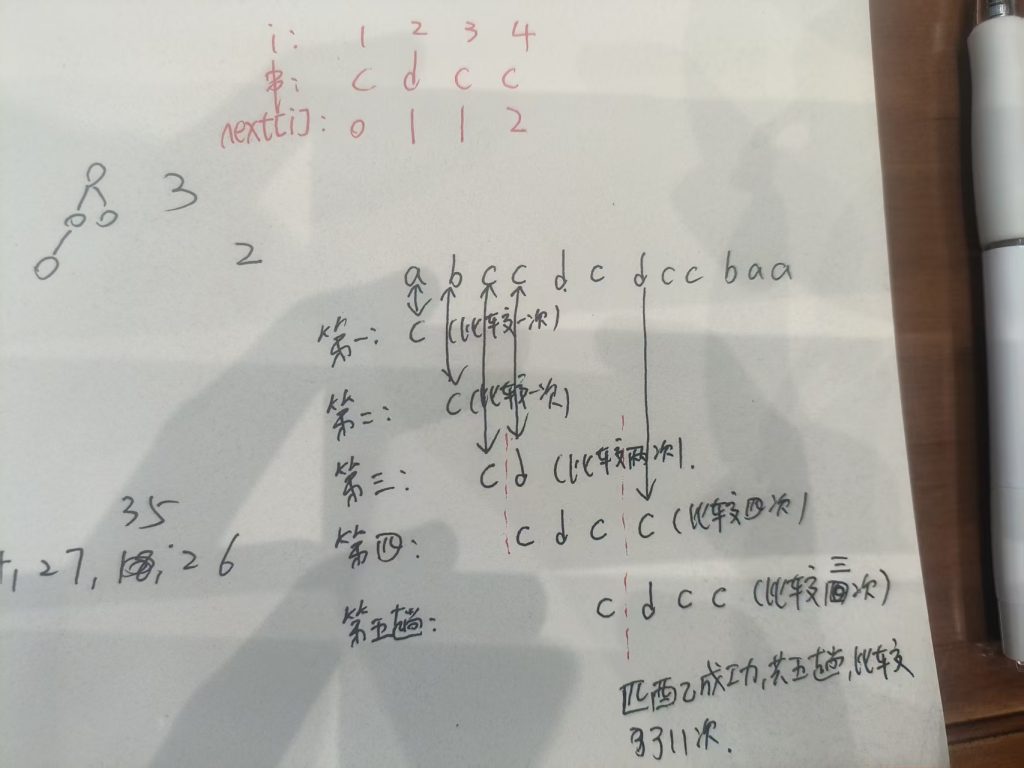 i: 1 2 3 4
串: c d c c
next[i]: 0 1 1 2
3
2
a b c c d c d c c b a a
第一: c (比较一次)
第二: c (比较一次)
第三: c d (比较两次).
第四: c d c c (比较四次)
35
27, 26
三
第五趟: c d c c (比较次)
匹配成功,共五趟,比较
了11次.